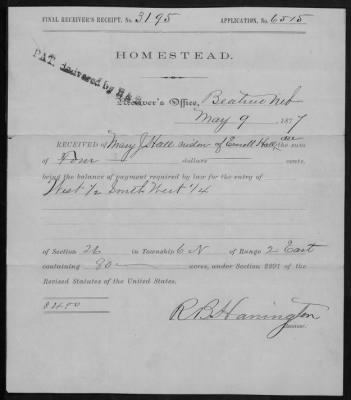 FINAL RECEIVER'S RECEIPT, No. 3195 APPLICATION, No. 6515
HOMESTEAD.
PAT. delivered by
Receiver's Office, Beatrice Neb
May 9 1877
RECEIVED of Mary J Hall widow of Hall decd the sum
of Four dollars cents,
being the balance of payment required by law for the entry of
West 1/2 South West 1/4
of Section 26 in Township 6 N of Range 2 East
containing 80 acres, under Section 2291 of the
Revised Statutes of the United States.
$4.00
R. B. Harrington
Receiver.